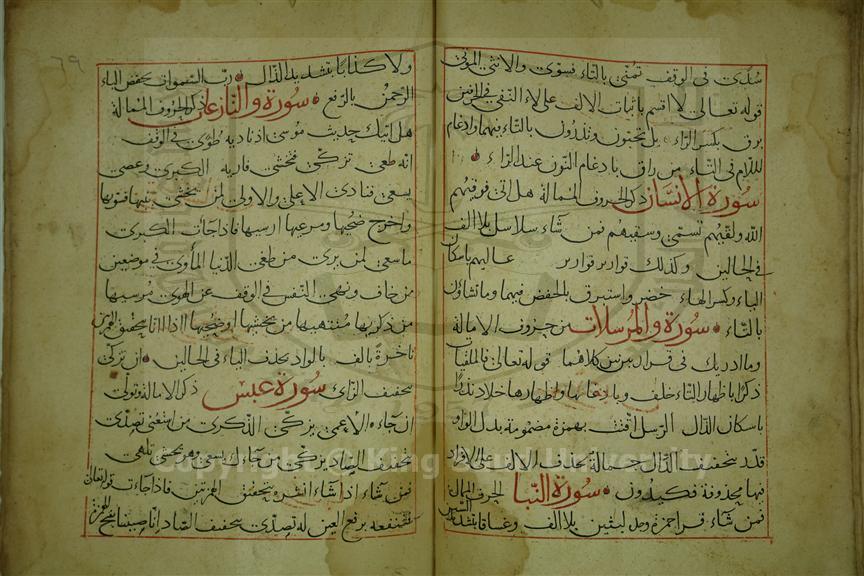 سدى في الوقف تمنى بالتاء فسوى والانثى الموتى
قوله تعالى لا اقسم باثبات الالف على لاء النفي في الحرفين
برق بكسر الراء بل تحبون وتذرون بالتاء فيهما وادغام
اللام في التاء من راق بادغام النون عند الراء
سورة الانسان ذكر الحروف الممالة هل اتى فوقيهم
الله ولقيهم تسمى وسقيهم فمن شاء سلاسل بلا الف
في الحالين وكذلك قوارير قوارير عاليهم باسكان
الياء وكسر الهاء خضر واستبرق بالخفض فيهما وما تشاؤن
بالتاء سورة والمرسلات من حروف الامالة
وما ادريك في قرار مكين كلاهما قوله تعالى فالملقيات
ذكرا باظهار التاء خلف وبادغامها واظهارها خلاد نذرا
باسكان الذال الرسل اقتت بهمزة مضمومة بدل الواو
فقدرنا بتخفيف الدال جمالة بحذف الالف على الافراد
فيها محذوفة فكيدون سورة النبا الحروف الممالة
فمن شاء قرا حمزة وحده لبثين بلا الف وغساقا بتشديد السين
٦٩
ولا كذابا بتشديد الذال رب السموات بخفض الباء
الرحمن بالرفع سورة والنازعات ذكر الحروف الممالة
هل اتيك حديث موسى اذ ناديه طوى في الوقف
انه طغى تزكى فتخشى فاريه الكبرى وعصى
يسعى فنادى الاعلى والاولى لمن يخشى بنيها فسويها
واخرج ضحيها ومرعيها ارسيها فاذا جاءت الكبرى
ما سعى لمن يرى من طغى الدنيا المأوى في موضعين
من خاف ونهى النفس في الوقف عن الهوى مرسيها
من ذكريها منتهيها من يخشيها او ضحيها ااذا اانا بتحقيق الهمزتين
ناخرة بالف بالواد بحذف الياء في الحالين ان تزكى
بتخفيف الزاى سورة عبس ذكر الامالة وتولى
ان جاءه الاعمى يزكى الذكرى من استغنى تصدى
بتخفيف الصاد يزكى من جاءك يسعى وهو يخشى تلهى
فمن شاء اذا شاء انشره بتحقيق الهمزتين فاذا جاءت قوله تعالى
فتنفعه برفع العين له تصدى بتخفيف الصاد انا صببنا بفتح الهمزة
Copyright © King Saud University